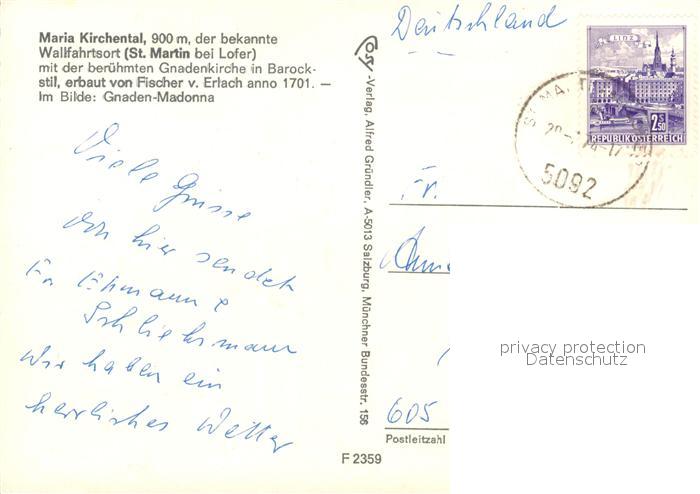 Maria Kirchental, 900 m, der bekannte
Wallfahrtsort (St. Martin bei Lofer)
mit der berühmten Gnadenkirche in Barock-
stil, erbaut von Fischer v. Erlach anno 1701. —
Im Bilde: Gnaden-Madonna
Viele Grüsse
von hier sendet
Fr
Wir haben ein
herrliches Wetter
Cosy-Verlag, Alfred Gründler, A-5013 Salzburg, Münchner Bundesstr. 156
F 2359
Deutschland
LINZ
2 S 50
REPUBLIK ÖSTERREICH
5092
Fr.
605
Postleitzahl
privacy protection
Datenschutz